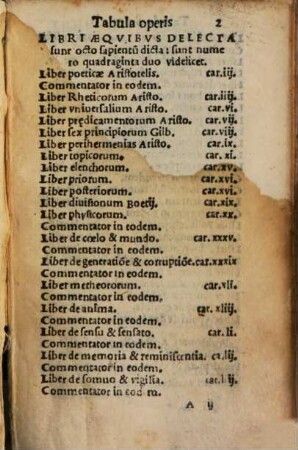 Tabula operis 2
LIBRI AEQVIBVS DELECTA
sunt octo sapientū dicta: sunt nume
ro quadraginta duo videlicet.
Liber poeticæ Aristotelis. car.iij.
Commentator in eodem.
Liber Rheticorum Aristo. car.iiij.
Liber vniuersalium Aristo. car.vi.
Liber prędicamentorum Aristo. car.vij.
Liber sex principiorum Gilb. car.vij.
Liber perihermenias Aristo. car.ix.
Liber topicorum. car. xi.
Liber elenchorum. car.xv.
Liber priorum. car.xvi.
Liber posteriorum. car.xvi.
Liber diuisionum Boetij. car.xix.
Liber physicorum. car.xx.
Commentator in eodem.
Liber de cœlo & mundo. car. xxxv.
Commentator in eodem.
Liber de generatiōe & corruptiōe.car.xxxix
Commentator in eodem.
Liber metheororum. car.xlі.
Commentator in eodem.
Liber de anima. car. xliij.
Commentator in eodem.
Liber de sensu & sensato. car.li.
Commentator in eodem.
Liber de memoria & reminiscentia. ca.lij.
Commentator in eodem.
Liber de somno & vigilia. car.lij.
Commentator in eodem.
A ij